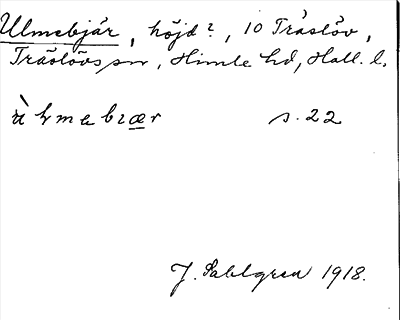 Ulmebjär, höjd?, 10 Träslöv,
Träslövs sn, Himle hd, Hall. l.
s. 22
J. Sahlgren 1918.